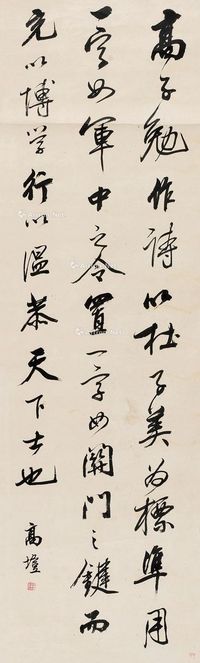 高子勉作诗以杜子美为標準用
一字如軍中之令置一字如關門之鍵而
充以博学行以温恭天下士也
高塏